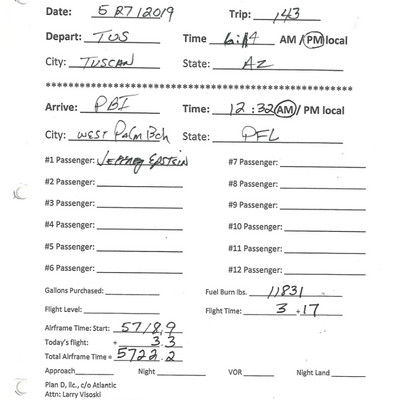 Date: 5 27 12019 Trip: 143
Depart: TUS Time 6:14 AM / PM local
City: TUSCAN State: AZ
Arrive: PBI Time: 12:32 AM / PM local
City: WEST PALM BCH State: FL
#1 Passenger: JEFFREY EPSTEIN #7 Passenger:
#2 Passenger: #8 Passenger:
#3 Passenger: #9 Passenger:
#4 Passenger: #10 Passenger:
#5 Passenger: #11 Passenger:
#6 Passenger: #12 Passenger:
Gallons Purchased: Fuel Burn lbs. 11831
Flight Level: Flight Time: 3 +17
Airframe Time: Start: 5718.9
Today's flight: + 3.3
Total Airframe Time = 5722.2
Approach Night VOR Night Land
Plan D, llc., c/o Atlantic
Attn: Larry Visoski